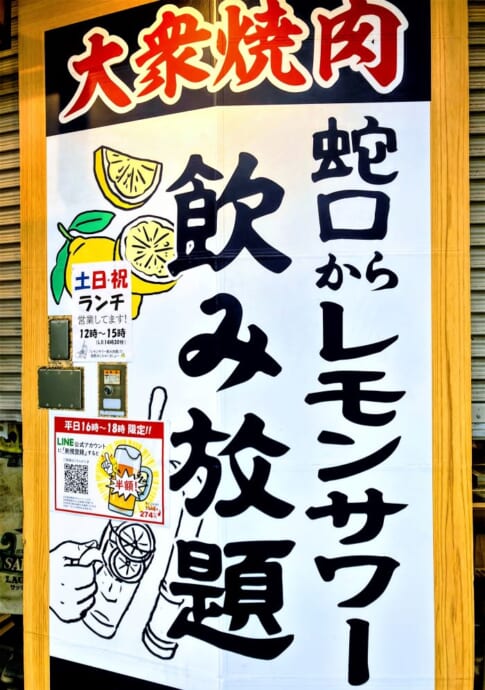 大衆焼肉
蛇口からレモンサワー
飲み放題
土日・祝
ランチ
営業してます!
12時〜15時
(L.O 14時30分)
平日16時〜18時 限定!!
LINE公式アカウント
に「新規登録」すると
半額!
274